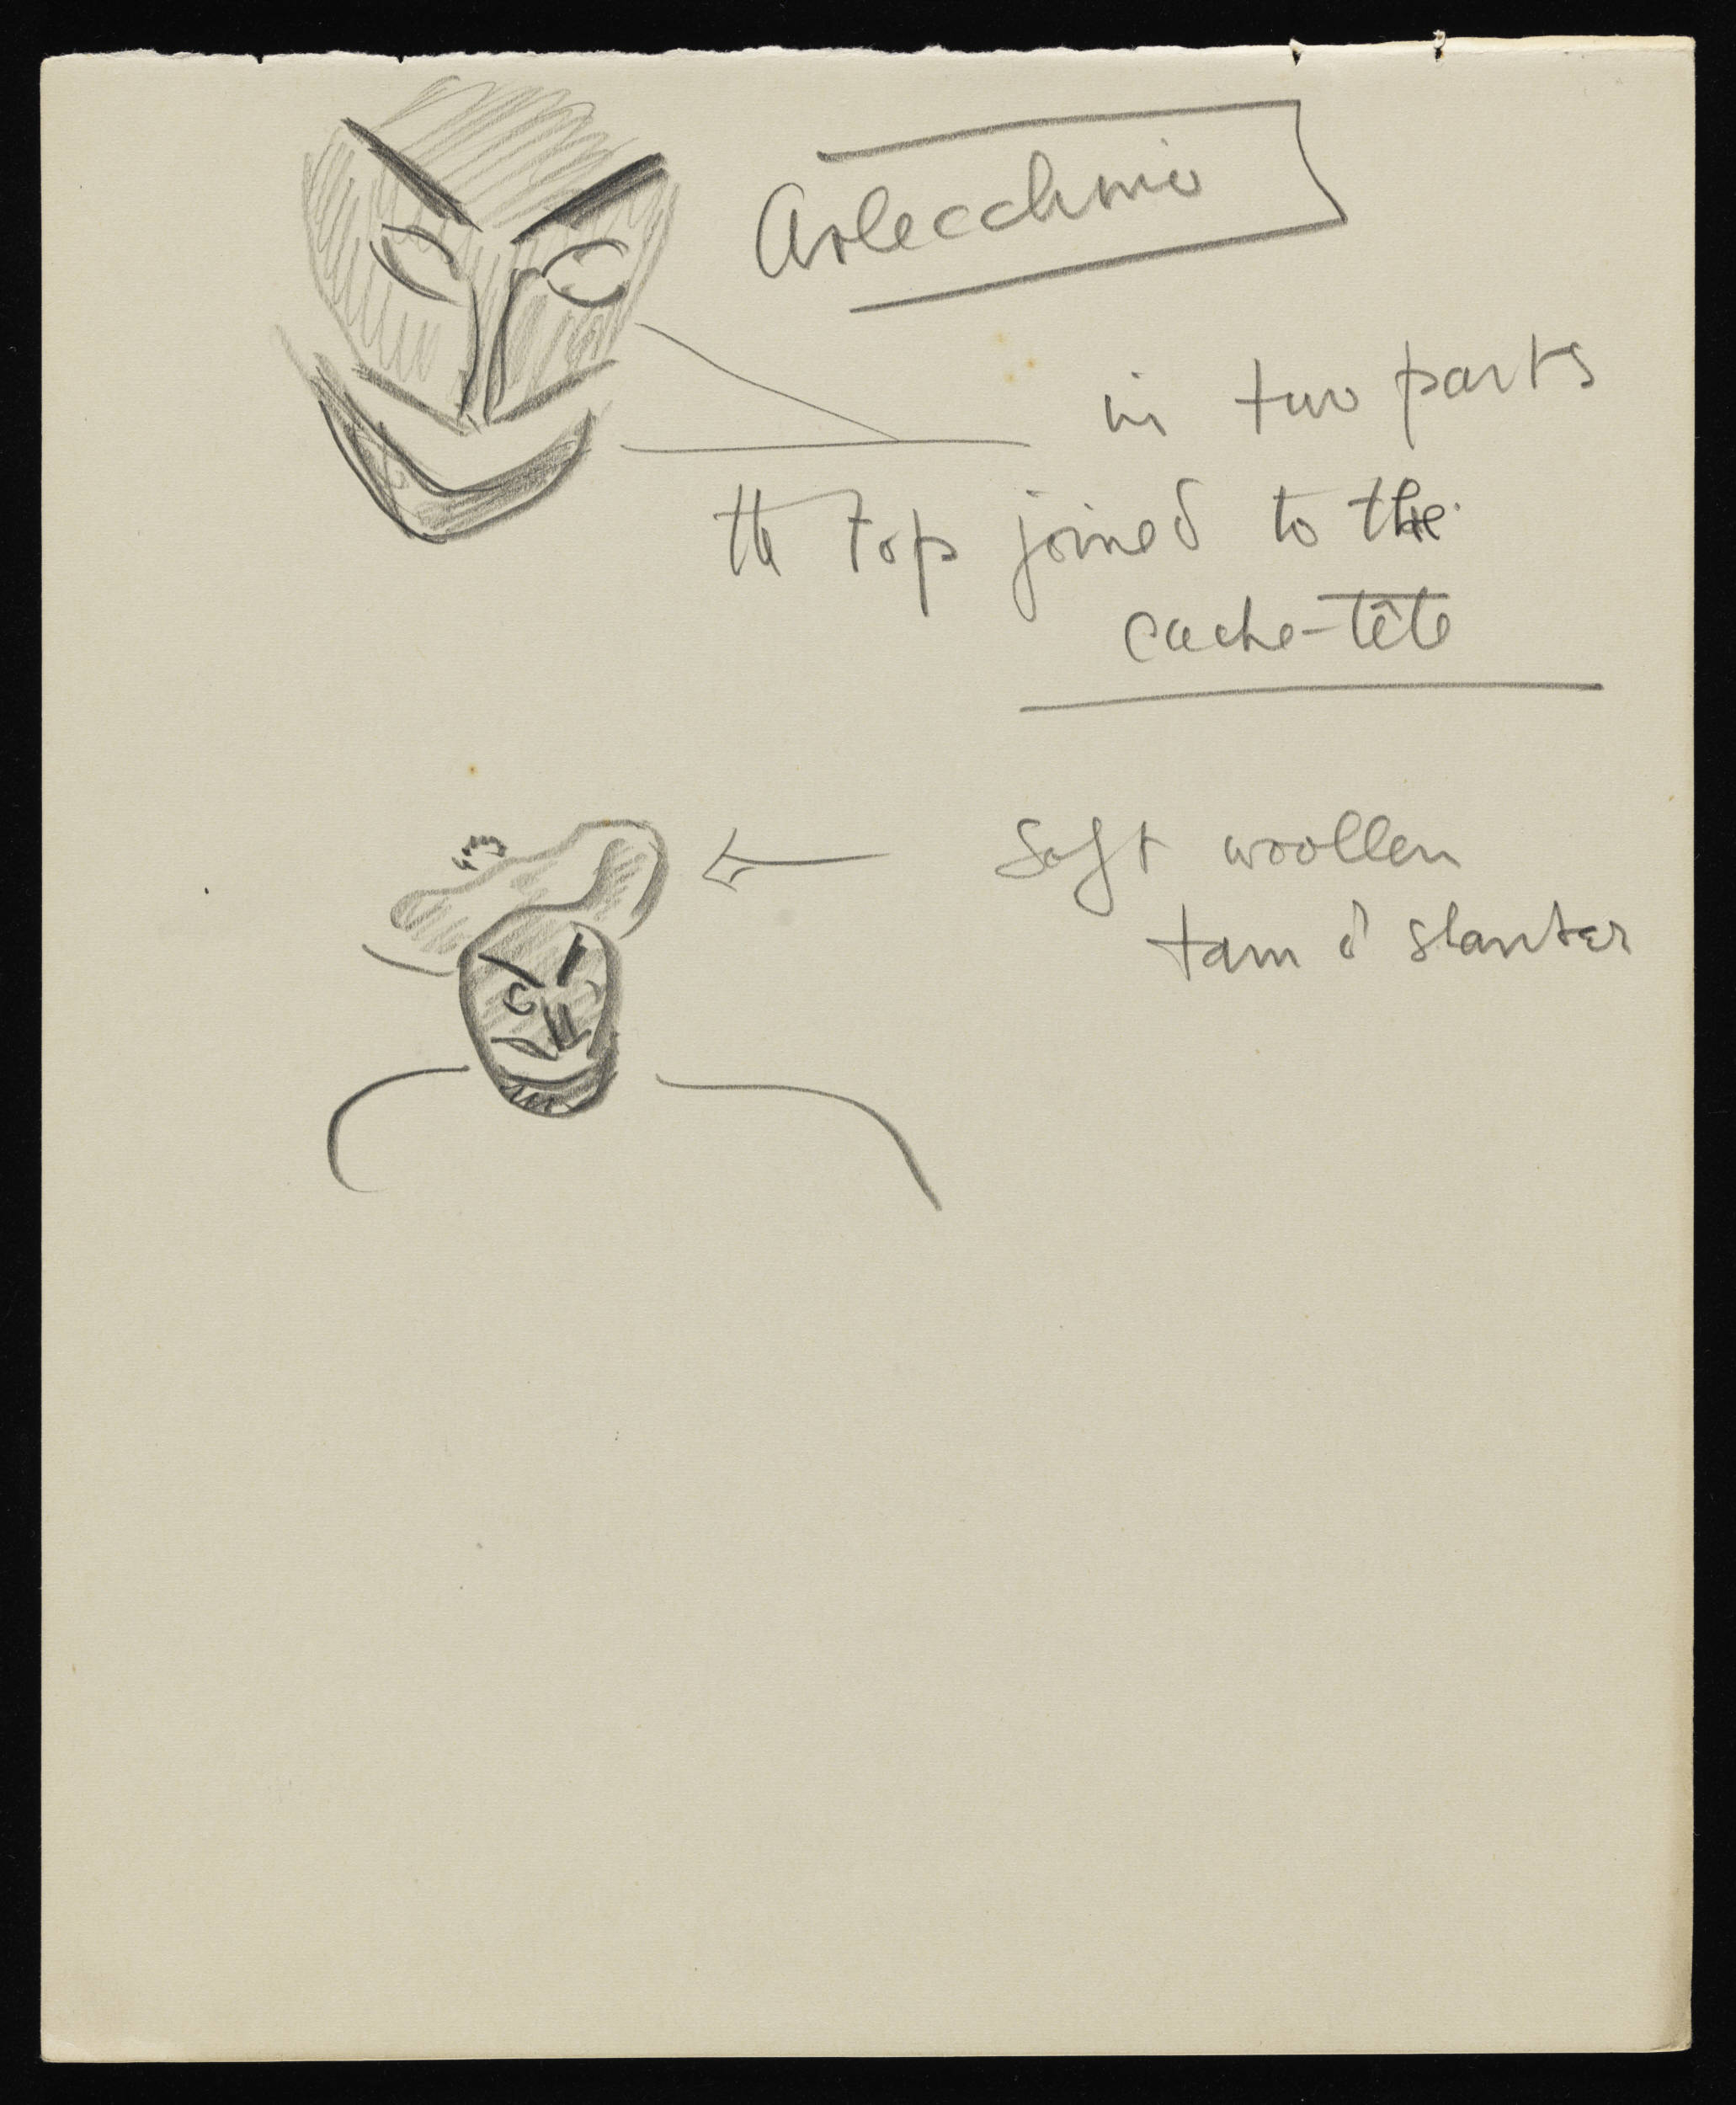 Arlecchino
in two parts
the top joined to the
cache-tête
Soft woollen
tam o' shanter